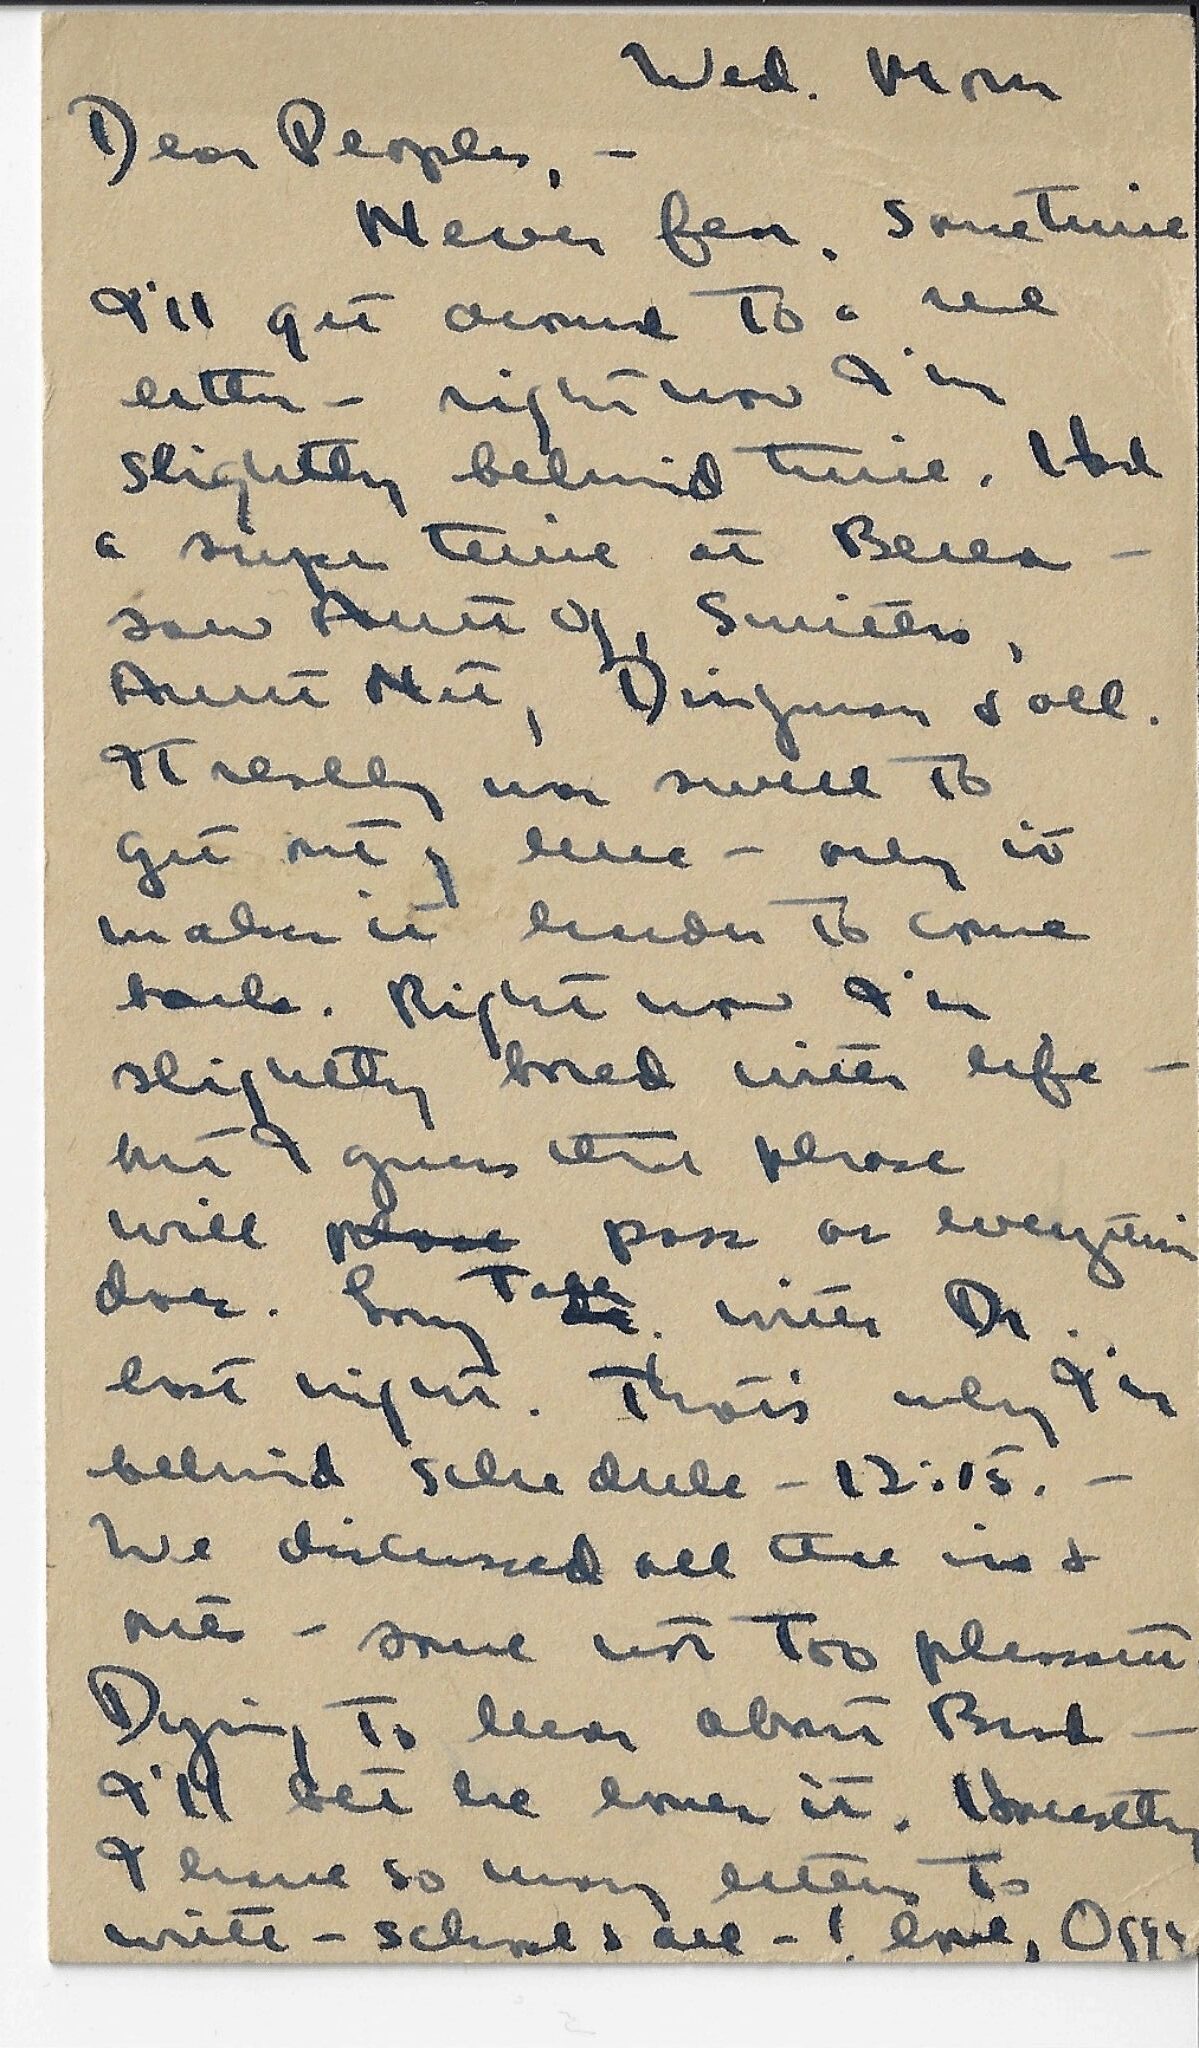 Wed. Morn
Dear Peoples, -
Never fear. Sometime
I'll get around to a real
letter - right now I'm
slightly behind time. Had
a super time at Berea -
saw Aunt Og, Smiths,
Aunt Net, Dingman & all.
It really was swell to
get out of here - only it
makes it harder to come
back. Right now I'm
slightly bored with life -
but I guess that phase
will phase pass as everythin
does. Long Talk with Dr.
last night. That's why I'm
behind schedule - 12:15. -
We discussed all the ins &
outs - some not too pleasant.
Dying to hear about Bud -
I'll bet he loves it. Honestly
I have so many letters to
write - school & all - ! Love,